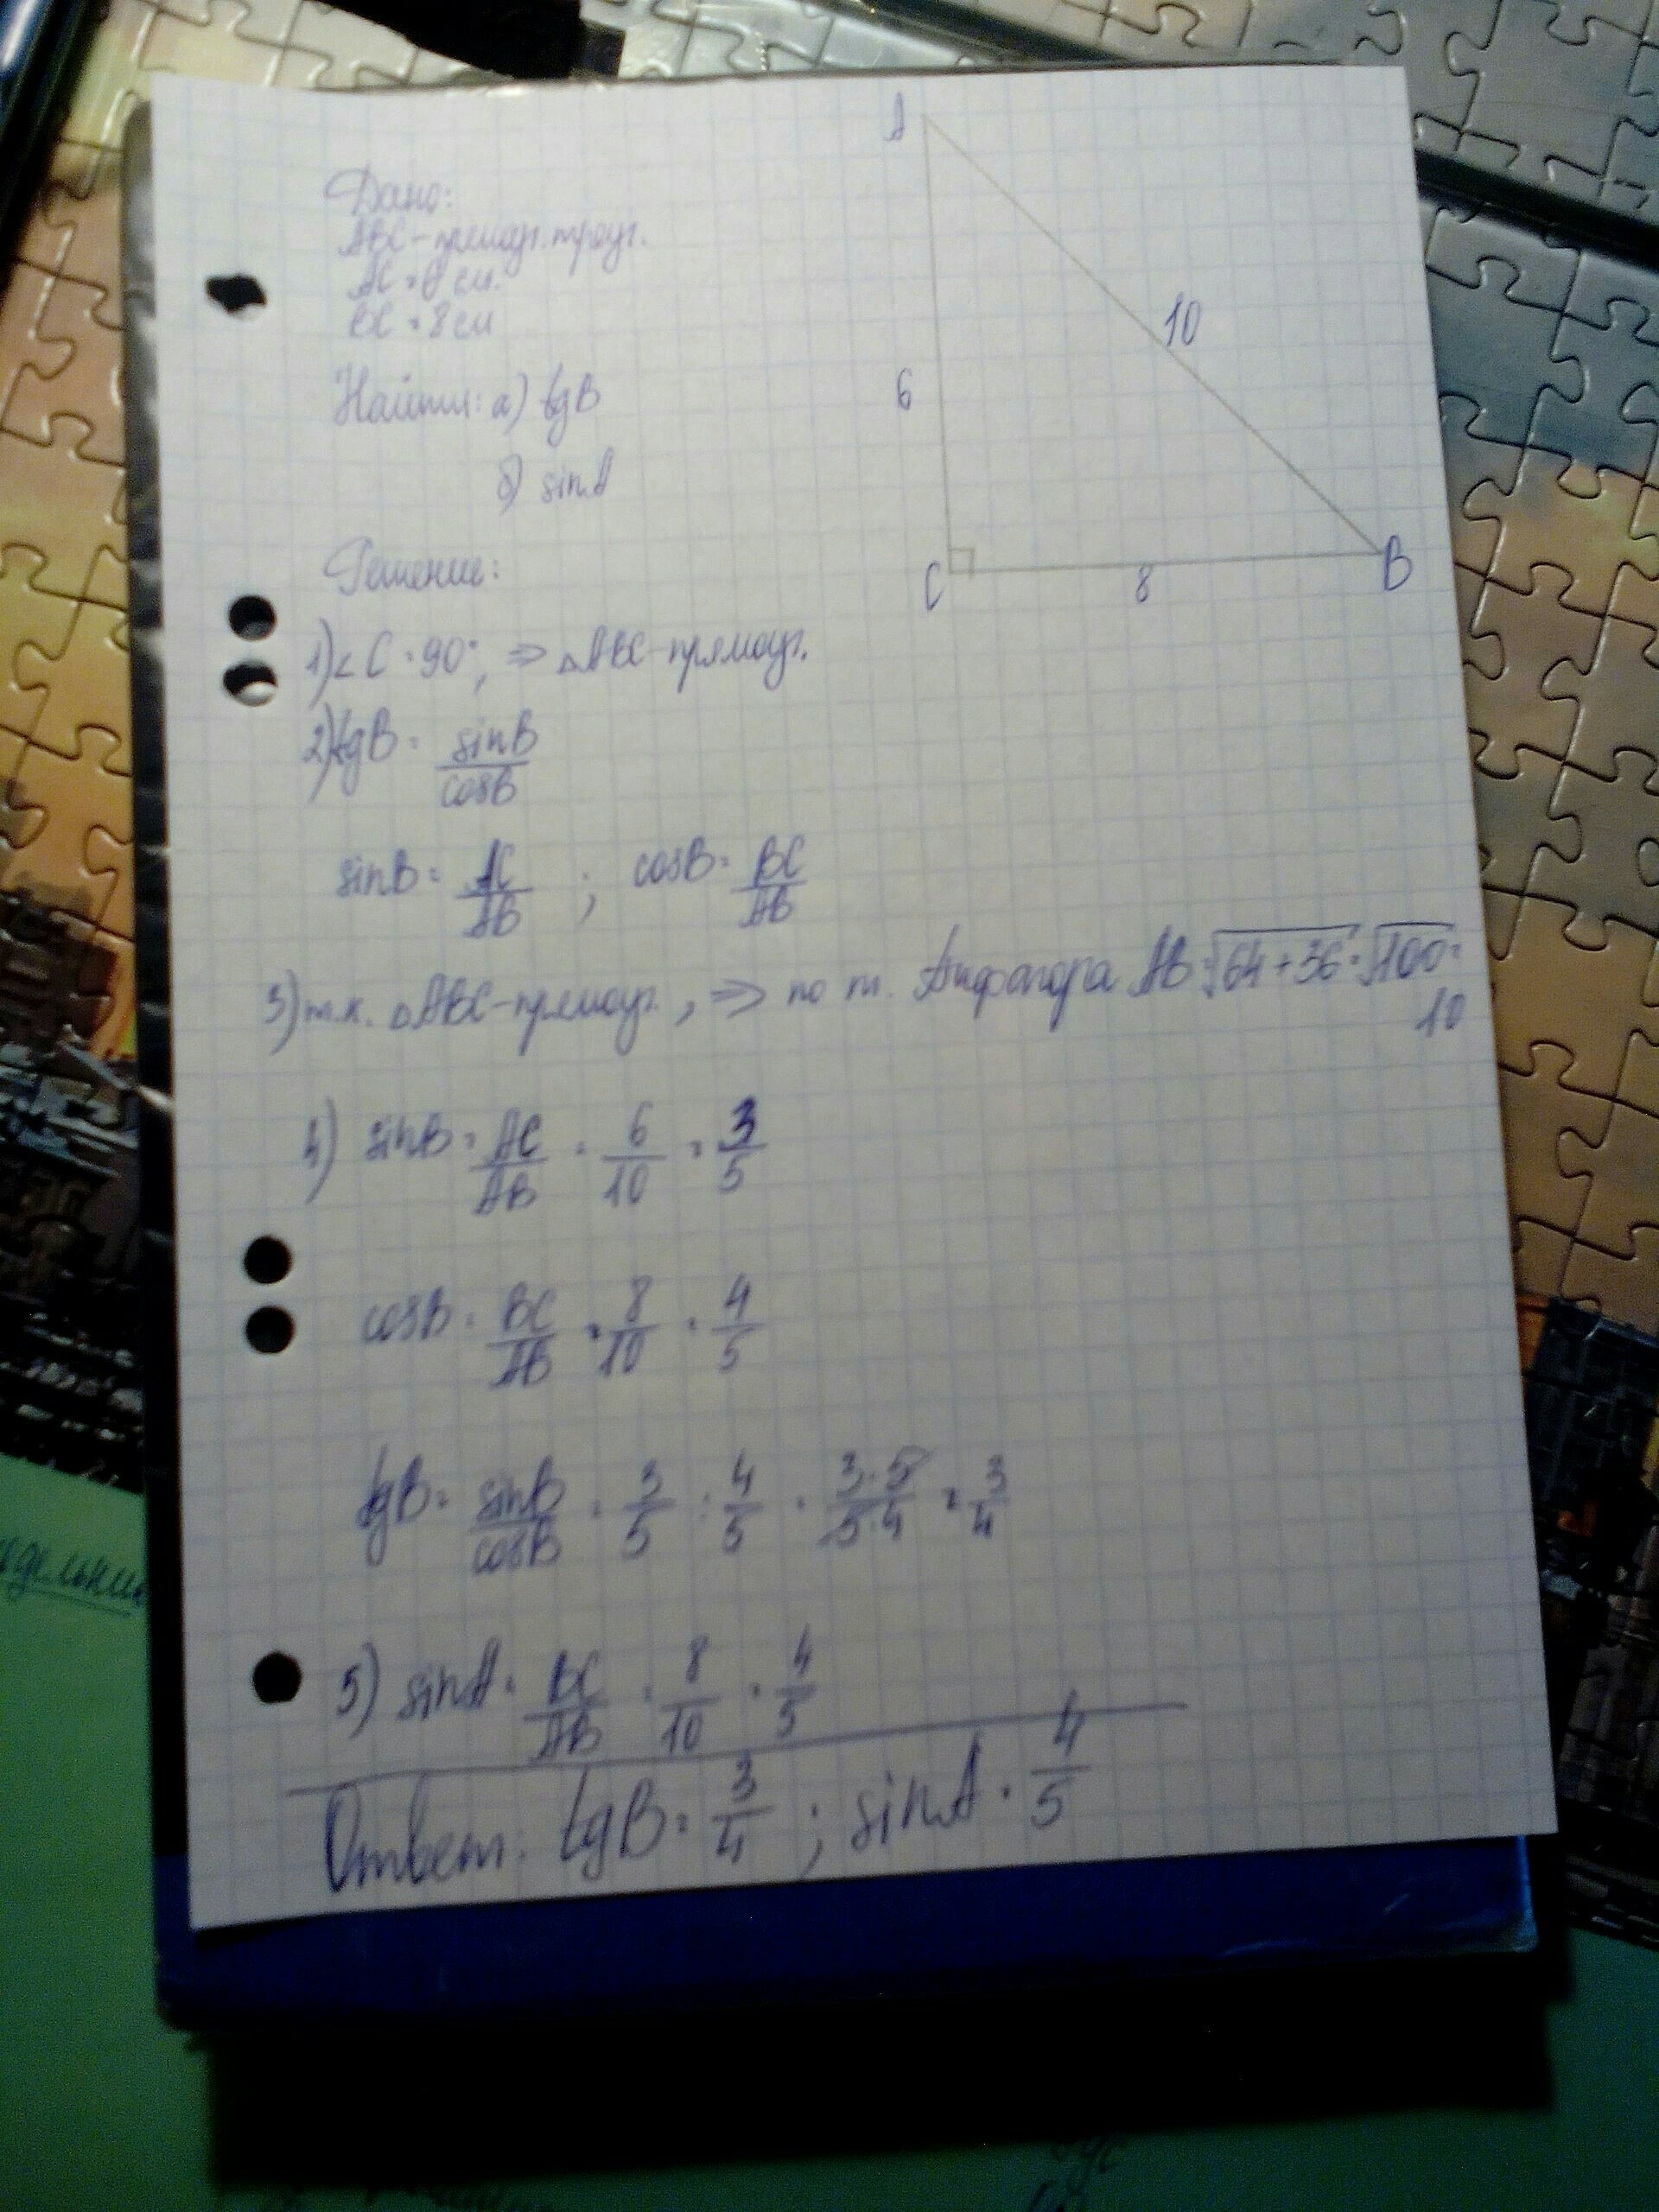 A
Дано:
ABC-прямоуг. треуг.
AC = 6 см.
BC = 8 см
10
6
Найти: а) tgB
б) sinA
C 8 B
Решение:
1) ∠C = 90°, ⇒ △ABC-прямоуг.
2) tgB = sinB/cosB
sinB = AC/AB ; cosB = BC/AB
3) т.к. △ABC-прямоуг., ⇒ по т. Пифагора AB = √64+36 = √100 =
10
4) sinB = AC/AB = 6/10 = 3/5
cosB = BC/AB = 8/10 = 4/5
tgB = sinB/cosB = 3/5 : 4/5 = 3·5/5·4 = 3/4
5) sinA = BC/AB = 8/10 = 4/5
Ответ: tgB = 3/4 ; sinA = 4/5